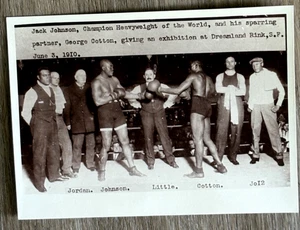 Jack Johnson, Champion Heavyweight of the World, and his sparring
partner, George Cotton, giving an exhibition at Dreamland Rink,S.F.
June 3, 1910.
Jordan. Johnson. Little. Cotton. Jo12